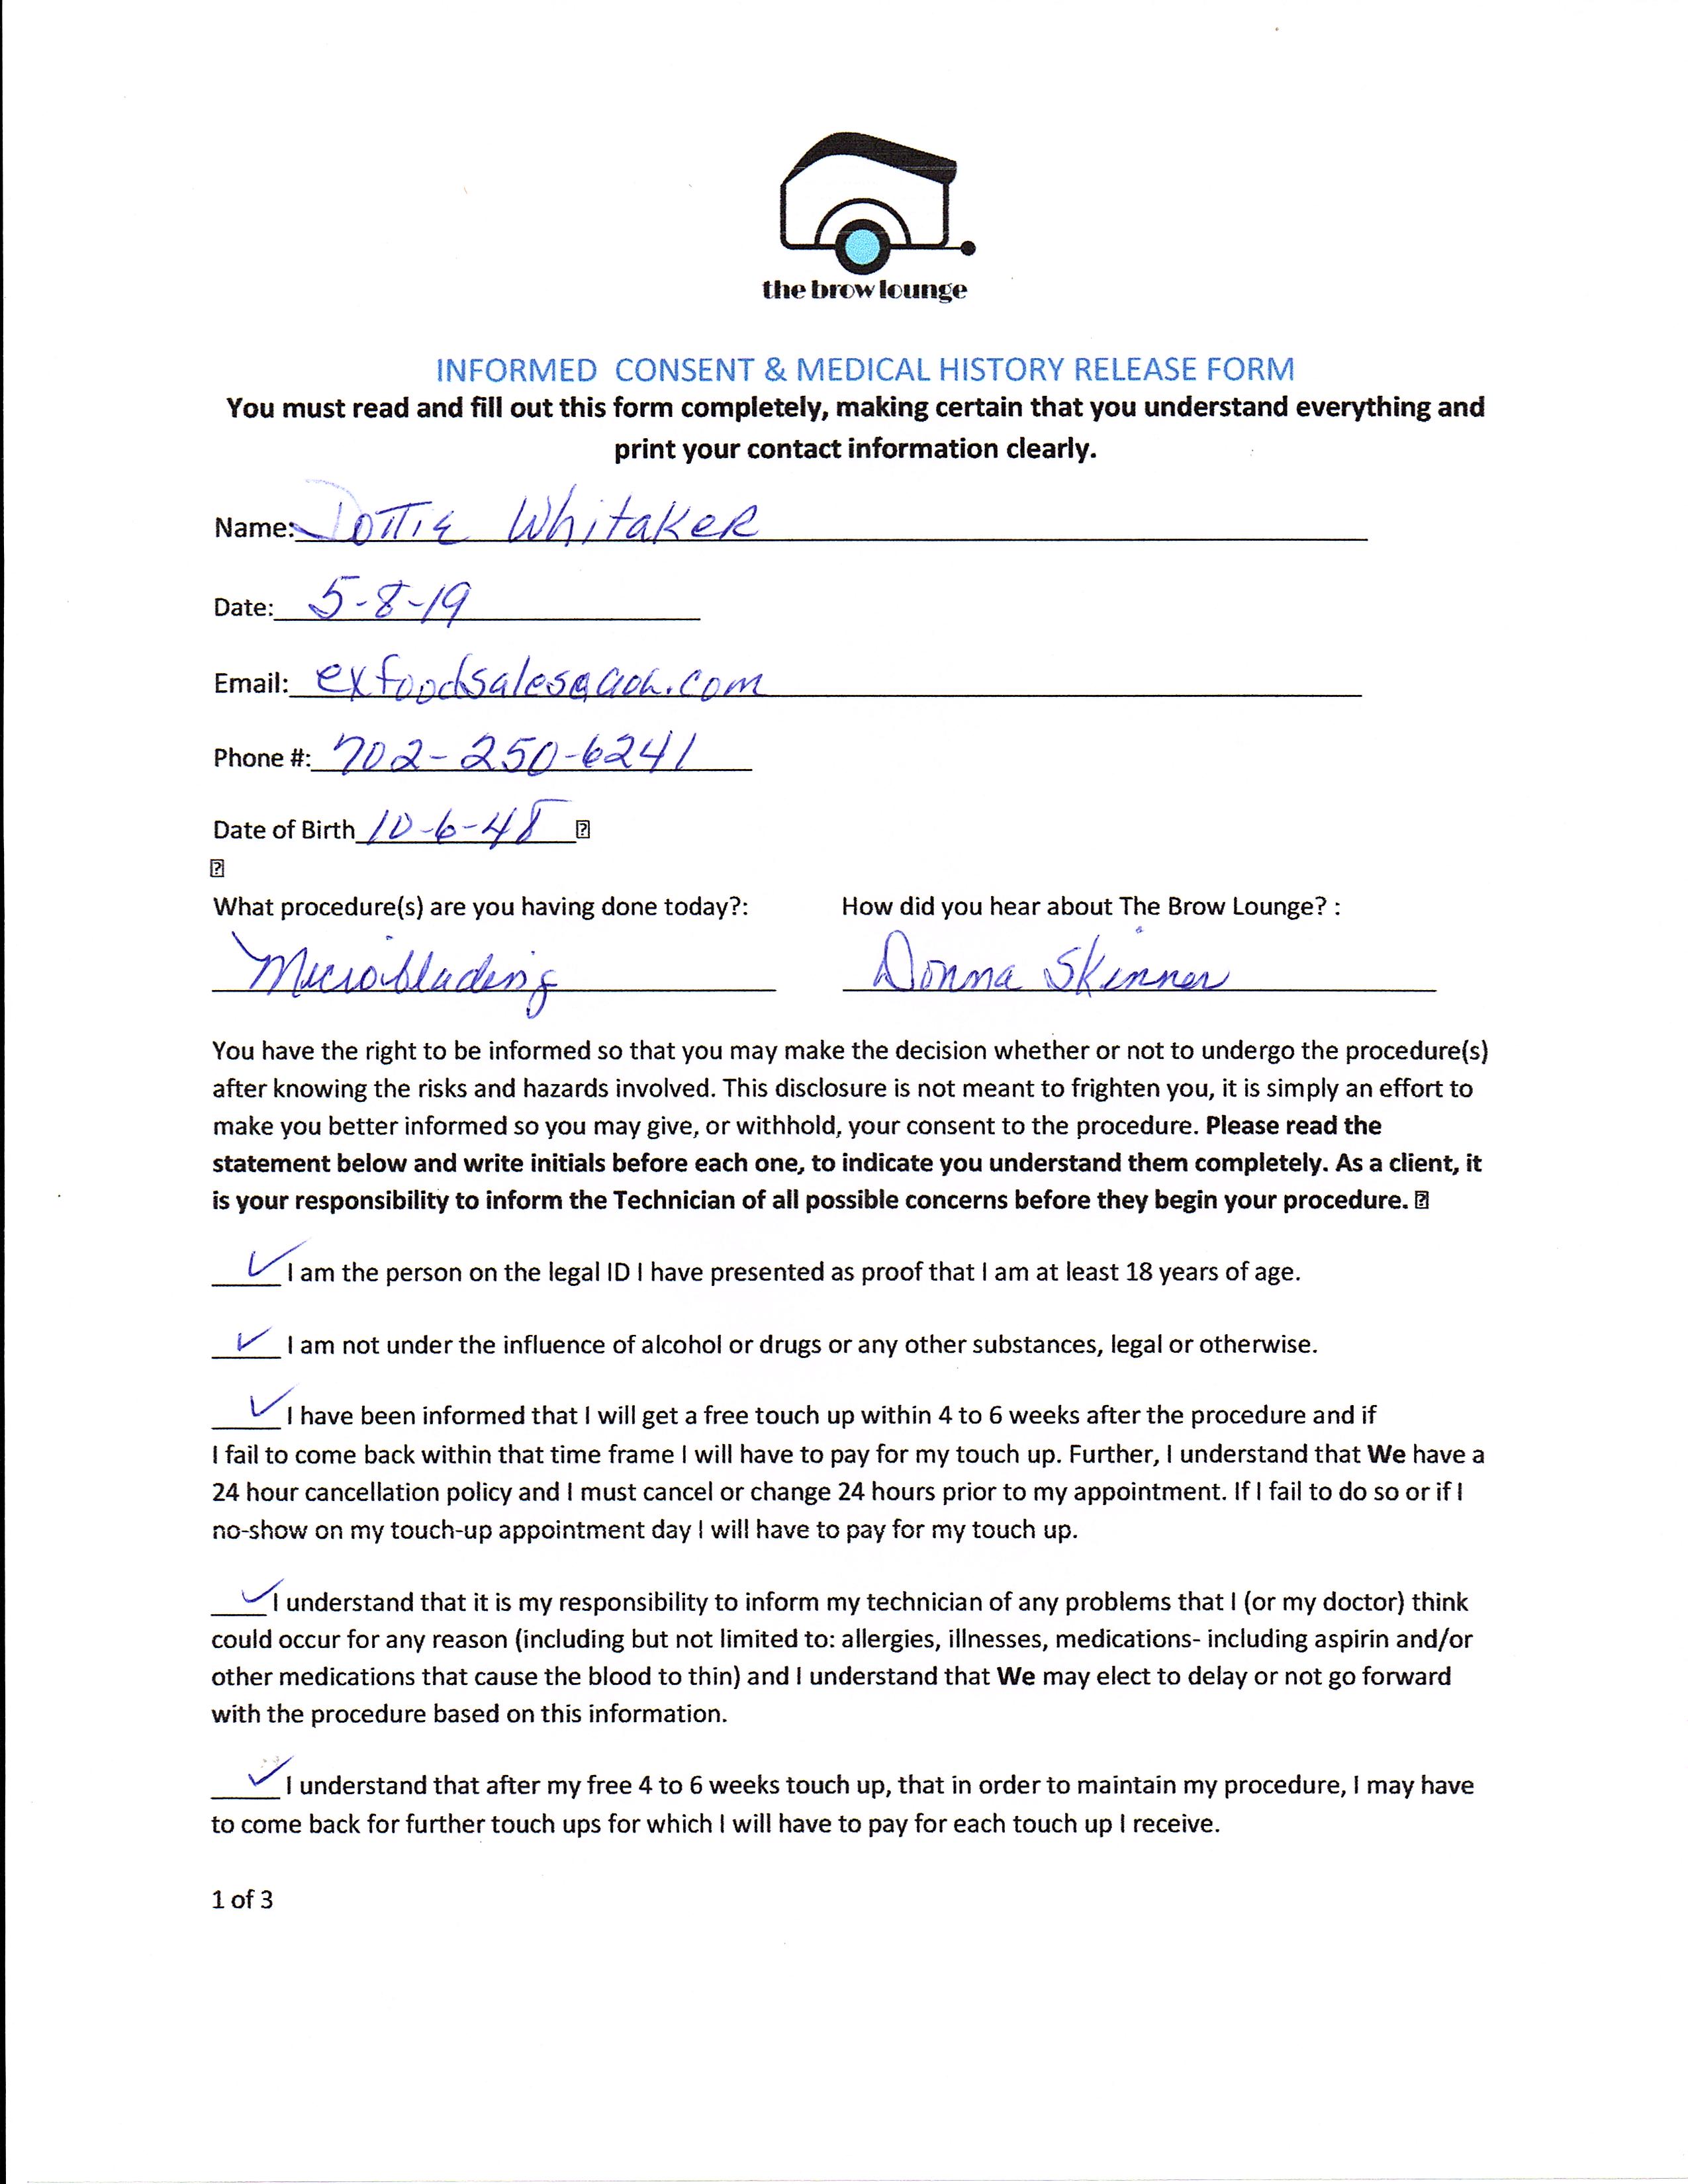 the brow lounge
INFORMED CONSENT & MEDICAL HISTORY RELEASE FORM
You must read and fill out this form completely, making certain that you understand everything and
print your contact information clearly.
Name: Dottie Whitaker
Date: 5-8-19
Email: exfoodsales@aol.com
Phone #: 702-250-6241
Date of Birth 10-6-48
What procedure(s) are you having done today?: How did you hear about The Brow Lounge? :
Microblading Donna Skinner
You have the right to be informed so that you may make the decision whether or not to undergo the procedure(s)
after knowing the risks and hazards involved. This disclosure is not meant to frighten you, it is simply an effort to
make you better informed so you may give, or withhold, your consent to the procedure. Please read the
statement below and write initials before each one, to indicate you understand them completely. As a client, it
is your responsibility to inform the Technician of all possible concerns before they begin your procedure.
✓ I am the person on the legal ID I have presented as proof that I am at least 18 years of age.
✓ I am not under the influence of alcohol or drugs or any other substances, legal or otherwise.
✓ I have been informed that I will get a free touch up within 4 to 6 weeks after the procedure and if
I fail to come back within that time frame I will have to pay for my touch up. Further, I understand that We have a
24 hour cancellation policy and I must cancel or change 24 hours prior to my appointment. If I fail to do so or if I
no-show on my touch-up appointment day I will have to pay for my touch up.
✓ I understand that it is my responsibility to inform my technician of any problems that I (or my doctor) think
could occur for any reason (including but not limited to: allergies, illnesses, medications- including aspirin and/or
other medications that cause the blood to thin) and I understand that We may elect to delay or not go forward
with the procedure based on this information.
✓ I understand that after my free 4 to 6 weeks touch up, that in order to maintain my procedure, I may have
to come back for further touch ups for which I will have to pay for each touch up I receive.
1 of 3